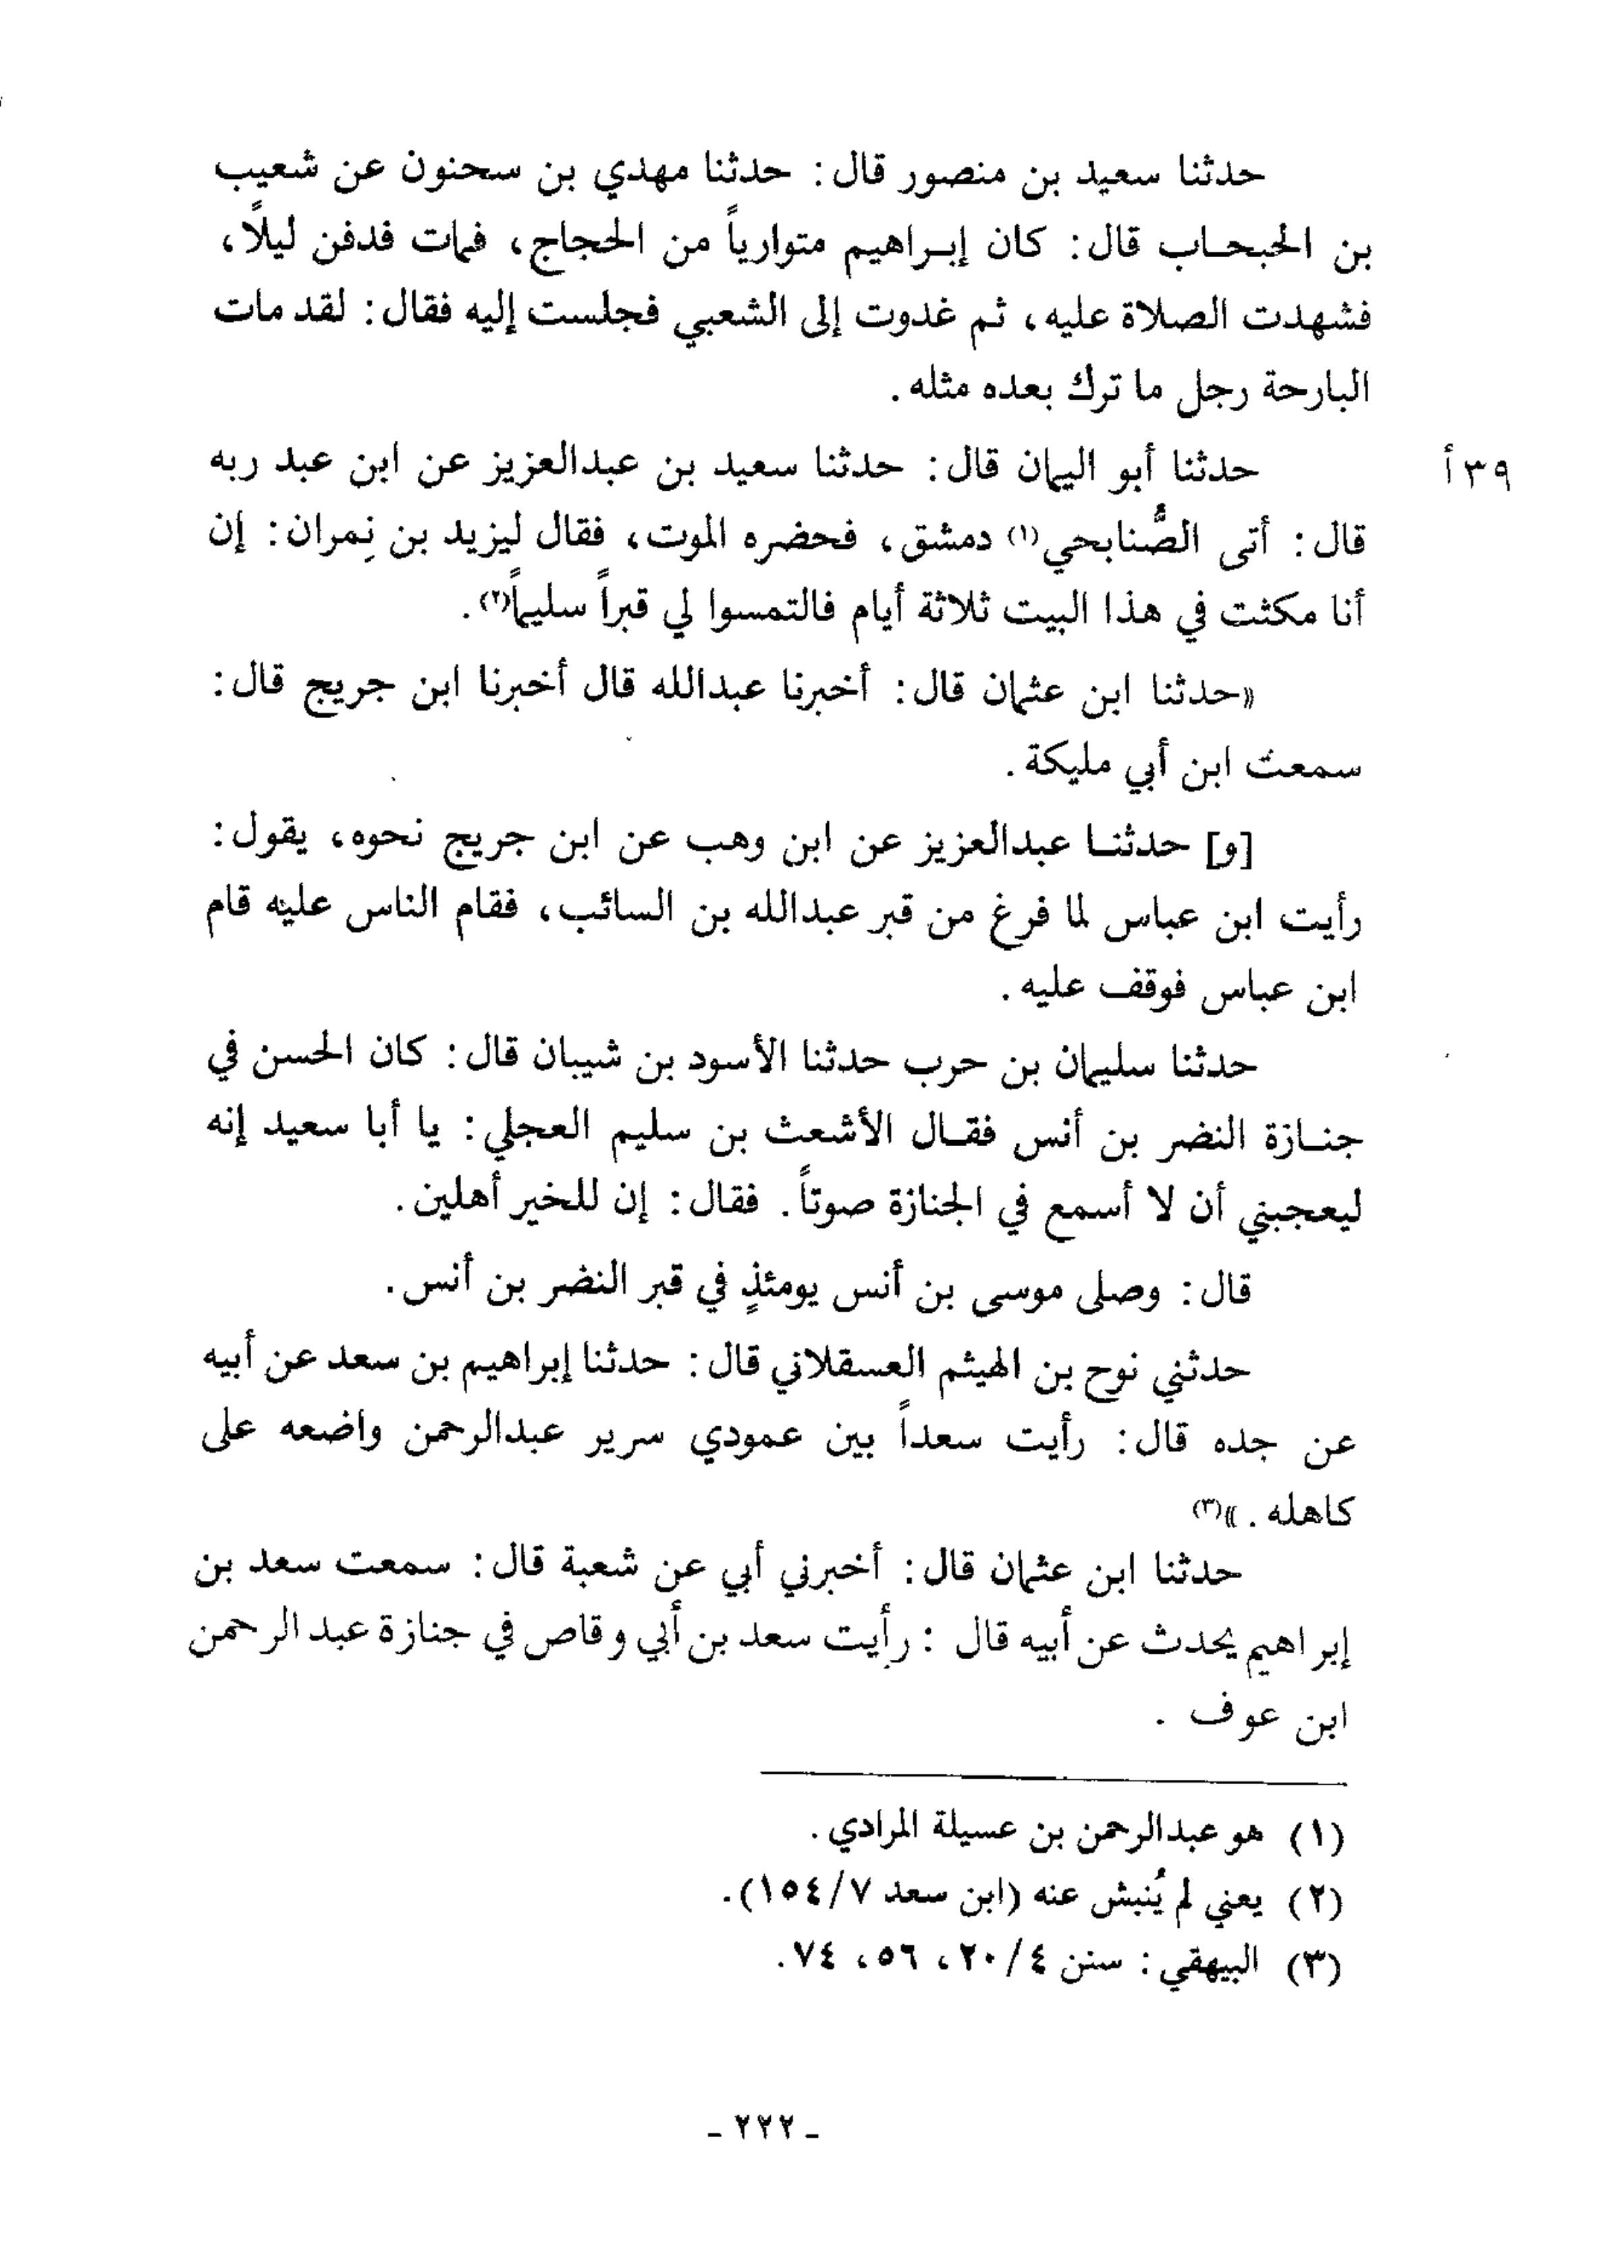 حدثنا سعيد بن منصور قال: حدثنا مهدي بن سحنون عن شعيب
بن الحبحاب قال: كان إبراهيم متوارياً من الحجاج، فمات فدفن ليلًا،
فشهدت الصلاة عليه، ثم غدوت إلى الشعبي فجلست إليه فقال: لقد مات
البارحة رجل ما ترك بعده مثله.
٣٩أ
حدثنا أبو اليمان قال: حدثنا سعيد بن عبدالعزيز عن ابن عبد ربه
قال: أتى الصُّنابحي(١) دمشق، فحضره الموت، فقال ليزيد بن نِمران: إن
أنا مكثت في هذا البيت ثلاثة أيام فالتمسوا لي قبراً سليماً(٢).
«حدثنا ابن عثمان قال: أخبرنا عبدالله قال أخبرنا ابن جريج قال:
سمعت ابن أبي مليكة.
[و] حدثنا عبدالعزيز عن ابن وهب عن ابن جريج نحوه، يقول:
رأيت ابن عباس لما فرغ من قبر عبدالله بن السائب، فقام الناس عليه قام
ابن عباس فوقف عليه.
حدثنا سليمان بن حرب حدثنا الأسود بن شيبان قال: كان الحسن في
جنازة النضر بن أنس فقال الأشعث بن سليم العجلي: يا أبا سعيد إنه
ليعجبني أن لا أسمع في الجنازة صوتاً. فقال: إن للخير أهلين.
قال: وصلى موسى بن أنس يومئذٍ في قبر النضر بن أنس.
حدثني نوح بن الهيثم العسقلاني قال: حدثنا إبراهيم بن سعد عن أبيه
عن جده قال: رأيت سعداً بين عمودي سرير عبدالرحمن واضعه على
كاهله.»(٣)
حدثنا ابن عثمان قال: أخبرني أبي عن شعبة قال: سمعت سعد بن
إبراهيم يحدث عن أبيه قال : رأيت سعد بن أبي وقاص في جنازة عبد الرحمن
ابن عوف .
(١) هو عبدالرحمن بن عسيلة المرادي.
(٢) يعني لم يُنبش عنه (ابن سعد ١٥٤/٧).
(٣) البيهقي: سنن ٢٠/٤، ٥٦، ٧٤.
ـ ٢٢٢ ـ